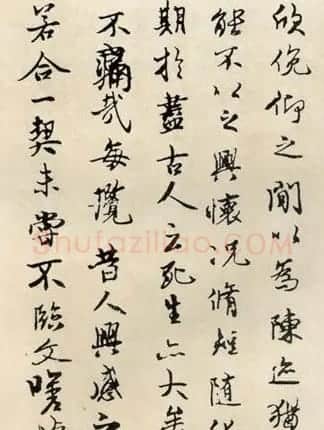 欣俛仰之閒以為陳迹猶
能不以之興懷況脩短隨化
期於盡古人云死生亦大矣
不痛哉每攬昔人興感之
若合一契未嘗不臨文嗟
shufaziliao.COM